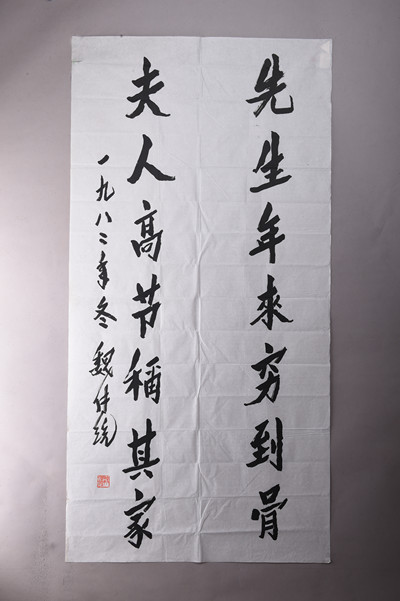 先生年来穷到骨
夫人高节称其家
一九八二年冬 魏传统